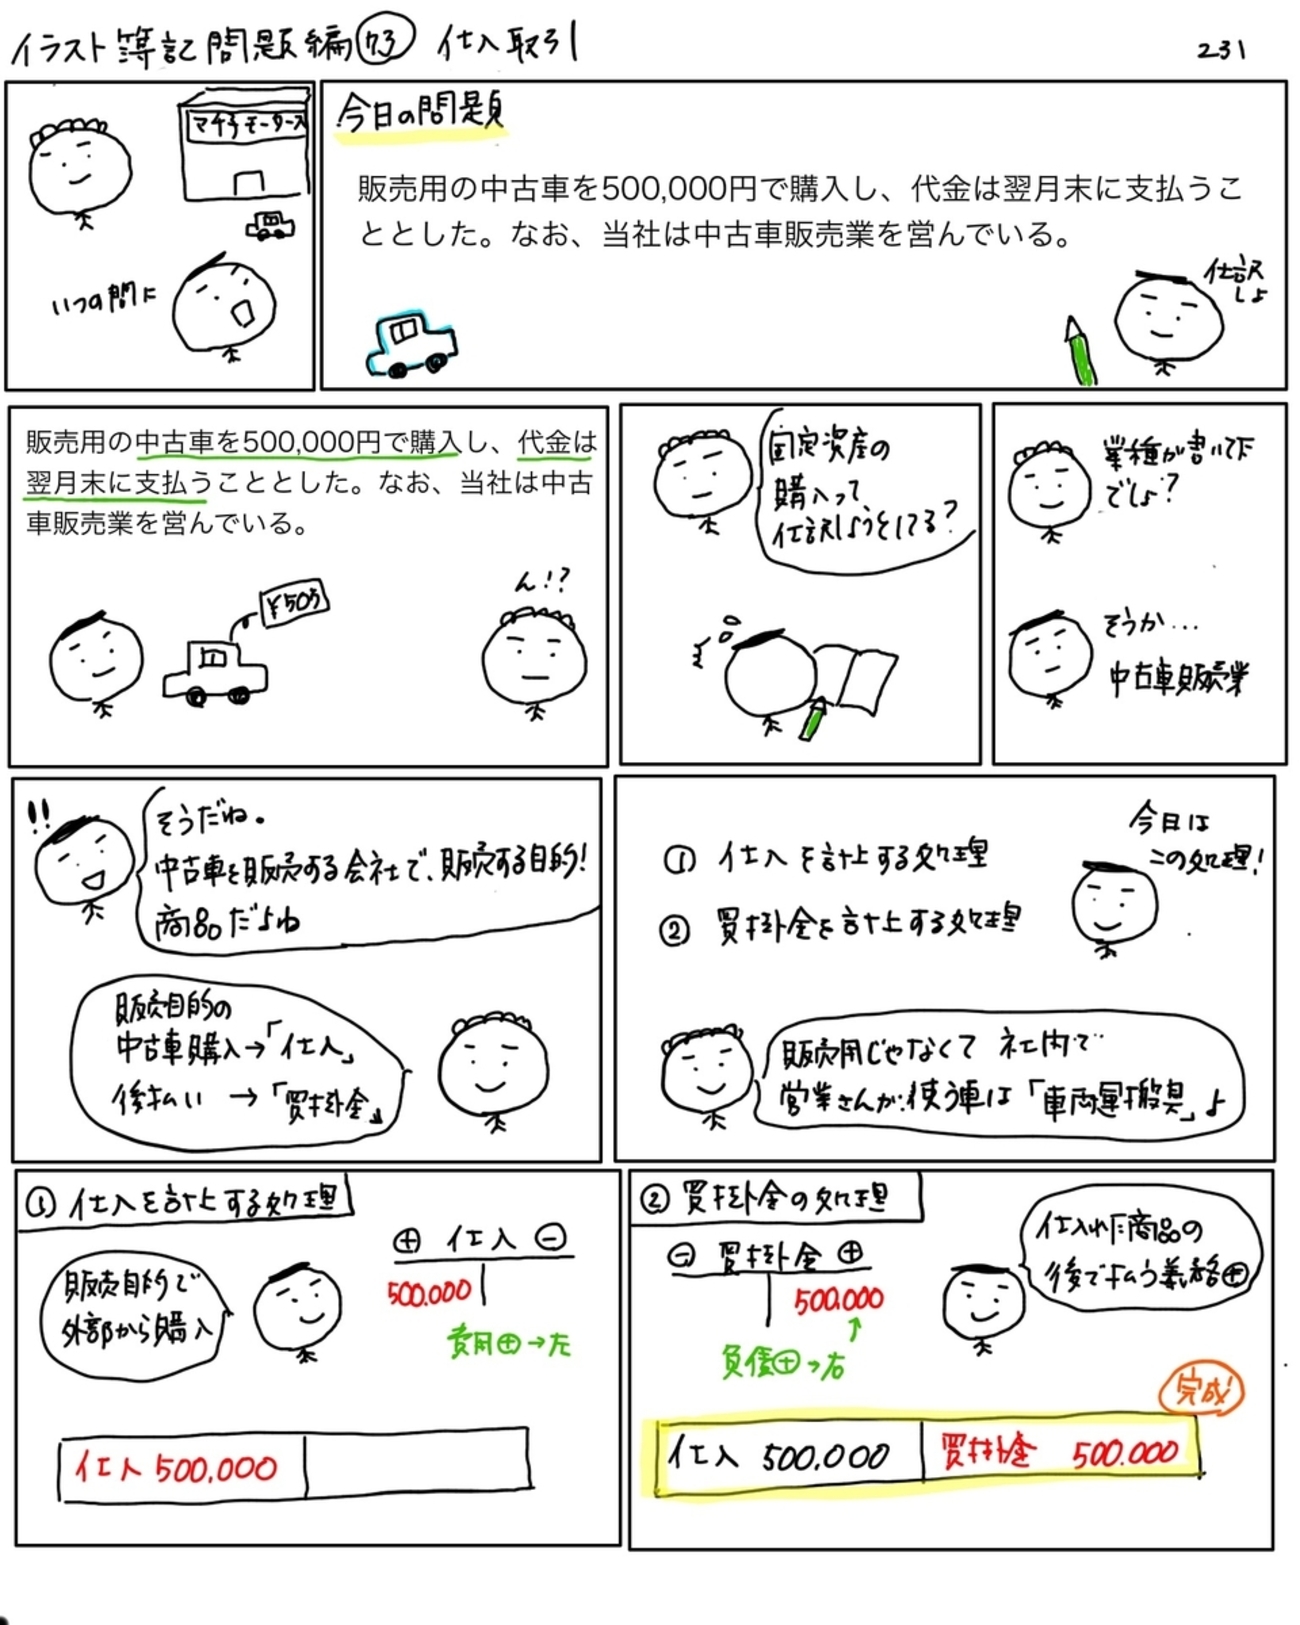 イラスト簿記問題編㊂73 仕入取引
231
マチ子モータース
いつの間に
今日の問題
販売用の中古車を500,000円で購入し、代金は翌月末に支払うこ
ととした。なお、当社は中古車販売業を営んでいる。
仕訳
しよ
販売用の中古車を500,000円で購入し、代金は
翌月末に支払うこととした。なお、当社は中古
車販売業を営んでいる。
¥50万
ん!?
固定資産の
購入って
仕訳しようとしてる?
業種が書いて
でしょ?
そうか...
中古車販売業
!!
そうだね。
中古車を販売する会社で、販売する目的!
商品だよね
販売目的の
中古車購入→「仕入」
後払い →「買掛金」
今日は
この処理!
① 仕入を計上する処理
② 買掛金を計上する処理
販売用じゃなくて 社内で
営業さんが使う車は「車両運搬具」よ
① 仕入を計上する処理
⊕ 仕入 ⊖
500.000
費用⊕→左
販売目的で
外部から購入
仕入 500,000
② 買掛金の処理
⊖ 買掛金 ⊕
500.000
負債⊕→右
仕入れた商品の
後で払う義務⊕
完成!
仕入 500,000 買掛金 500.000